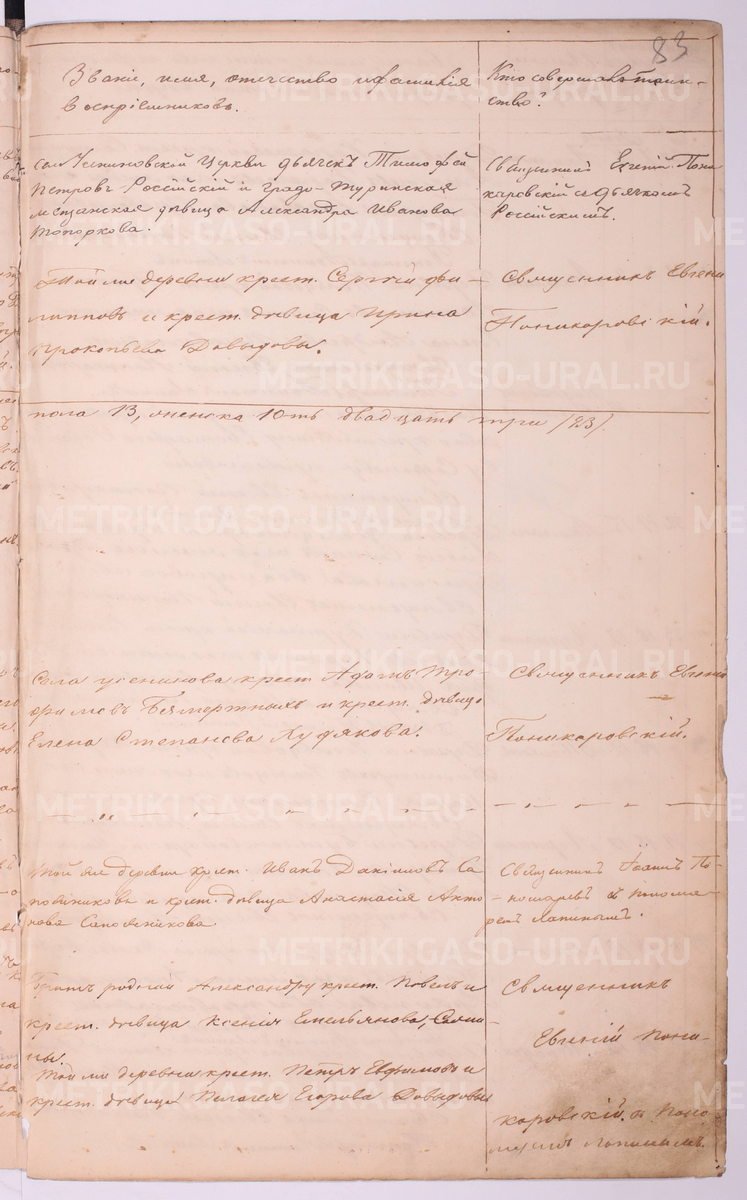 83
Званіе, имя, отчество и фамилія
воспріемниковъ.
Кто совершалъ таин-
ство?
села Усениновской Церкви дьячекъ Тимофей
Петровъ Россійскій и градо-туринская
мещанская дѣвица Александра Иванова
Топоркова.
Священникъ Евгеній Пони
каровскій съ дьячкомъ
Россійскимъ.
Той же деревни крест. Сергѣй Фи-
липповъ и крест. дѣвица Ирина
Прокопьева Давыдовы.
Священникъ Евгени
Поникаровскій.
пола 13, женска 10ть двадцать три (23).
Села усенинова крест. Афонъ Тро-
фимовъ Безмертныхъ и крест. дѣвица
Елена Степанова Худякова.
Священникъ Евгеній
Поникаровскій.
Той же деревни крест. Иванъ Даніиловъ Са
пожниковъ и крест. дѣвица Анастасія Анто
нова Сапожникова.
Священникъ Іоаннъ По-
номаревъ съ понома-
ремъ Лапинымъ.
Братъ родной Александру крест. Павелъ и
крест. дѣвица Ксенія Емельянова,
ны.
Священникъ
Евгеній Пони-
Той же деревни крест. Петръ Евфимовъ и
крест. дѣвица Пелагея Егорова Давыдовы
каровскій съ поно
маремъ Лапинымъ.
METRIKI.GASO-URAL.RU